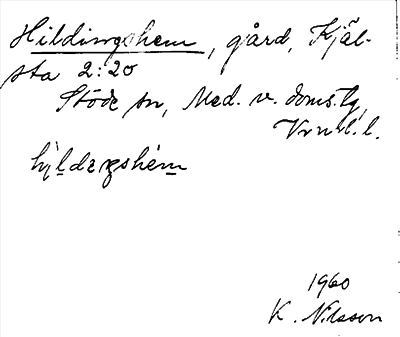 Hildingshem, gård, Kjäl-
sta 2:20
Stöde sn, Med. v. doms.lg,
Vrnl. l.
hìldıŋshém
1960
K. Nilsson